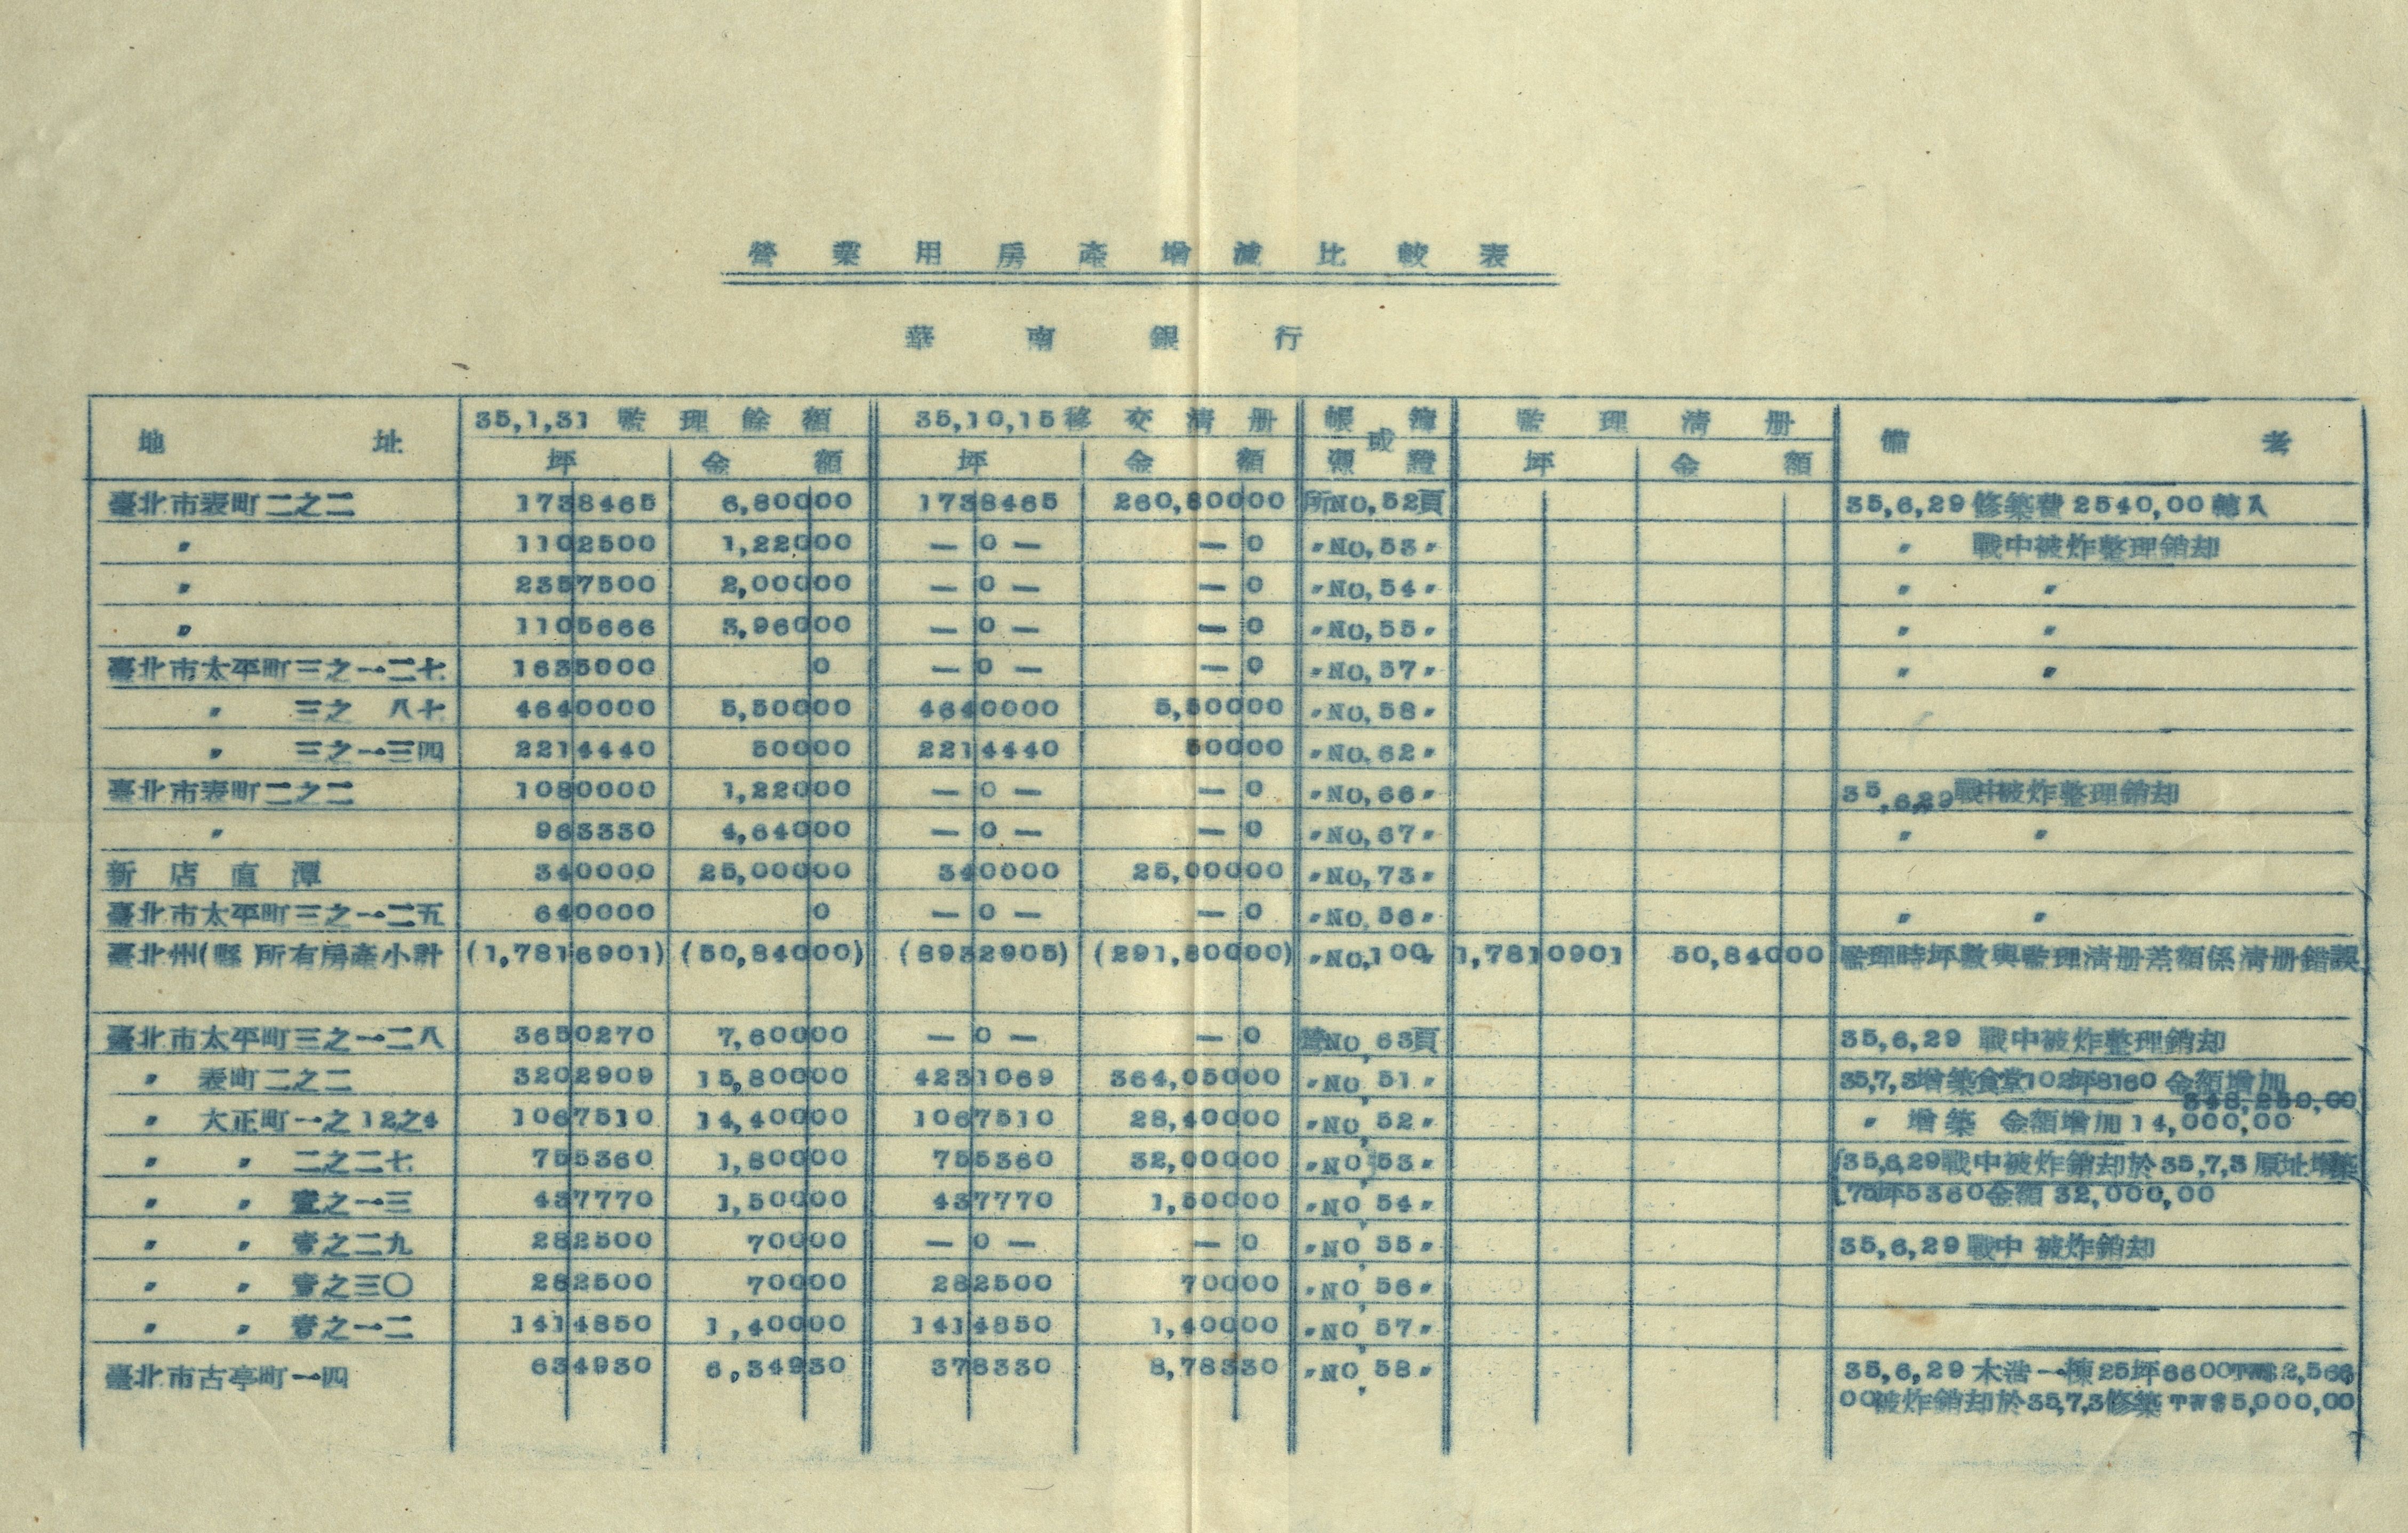 營業用房產增減比較表
華南銀行
地址 35,1,31監理餘額 35,10,15移交清册 帳簿或憑證 監理清册 備考
坪 金額 坪 金額 坪 金額
臺北市表町二之二 1738465 6,80000 1738465 260,80000 所NO,52頁 35,6,29修築費2540,00轉入
〃 1102500 1,22000 —0— —0 〃NO,53〃 〃 戰中被炸整理銷却
〃 2357500 2,00000 —0— —0 〃NO,54〃 〃 〃
〃 1105666 3,96000 —0— —0 〃NO,55〃 〃 〃
臺北市太平町三之一二七 1635000 0 —0— —0 〃NO,57〃 〃 〃
〃 三之 八七 4640000 5,50000 4640000 5,50000 〃NO,58〃
〃 三之一三四 2214440 50000 2214440 50000 〃NO,62〃
臺北市表町二之二 1080000 1,22000 —0— —0 〃NO,66〃 35,6,29戰中被炸整理銷却
〃 963330 4,64000 —0— —0 〃NO,67〃 〃 〃
新店直潭 340000 25,00000 340000 25,00000 〃NO,73〃
臺北市太平町三之一二五 640000 0 —0— —0 〃NO,56〃 〃 〃
臺北州(縣 所有房產小計 (1,7816901) (50,84000) (8932905) (291,80000) 〃NO,100〃 1,7810901 50,84000 監理時坪數與監理清册差額係清册錯誤
臺北市太平町三之一二八 3650270 7,60000 —0— —0 營NO,63頁 35,6,29 戰中被炸整理銷却
〃 表町二之二 3202909 15,80000 4231069 364,05000 〃NO,51〃 35,7,3增築食堂102坪8160 金額增加
348,250,00
〃 大正町一之12之4 1067510 14,40000 1067510 28,40000 〃NO,52〃 〃 增築 金額增加14,000,00
〃 〃 二之二七 755360 1,80000 755360 32,00000 〃NO,53〃 (35,6,29戰中被炸銷却於35,7,3原址增築
〃 〃 壹之一三 437770 1,50000 437770 1,50000 〃NO,54〃 75坪5360金額32,000,00
〃 〃 壹之二九 282500 70000 —0— —0 〃NO,55〃 35,6,29戰中 被炸銷却
〃 〃 壹之三〇 282500 70000 282500 70000 〃NO,56〃
〃 〃 壹之一二 1414850 1,40000 1414850 1,40000 〃NO,57〃
臺北市古亭町一四 634930 6,34930 378330 8,78330 〃NO,58〃 35,6,29木造一棟25坪6600TW$2,566,
00被炸銷却於35,7,3修築TW$5,000,00